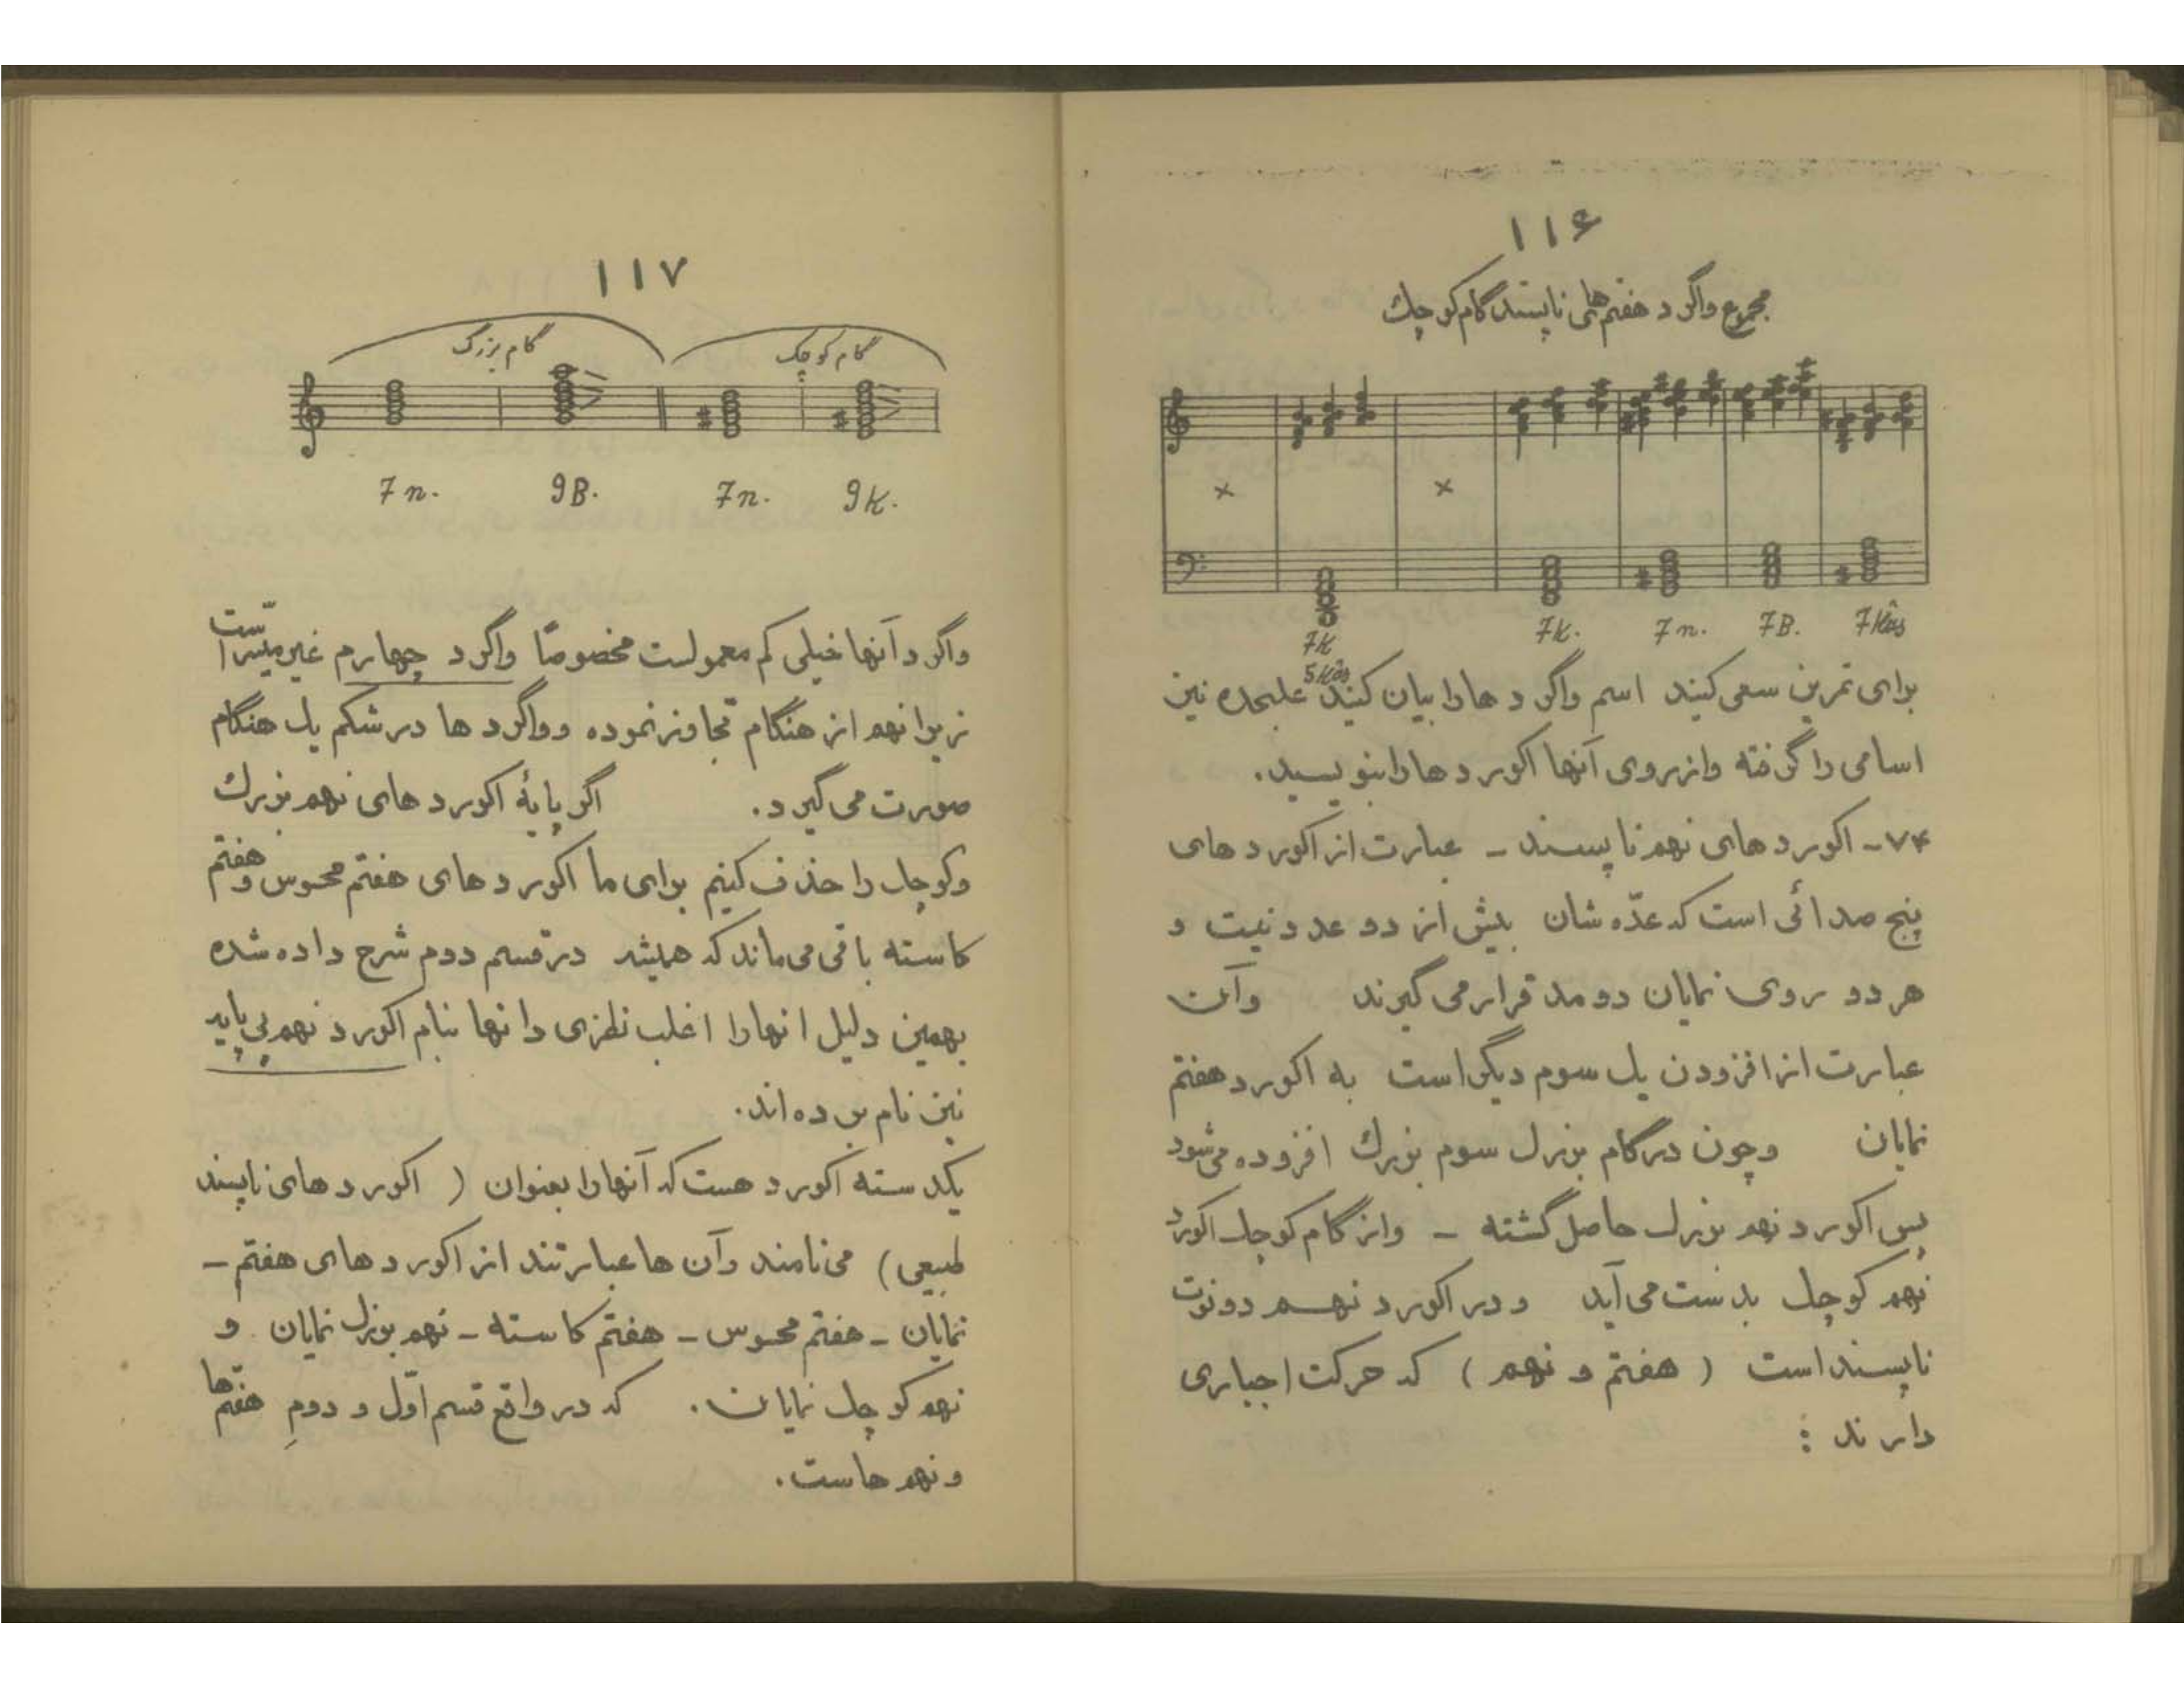 ۱۱۶
مجموع واگرد هفتم‌های ناپسند گام کوچک
7K 5Kâs 7K. 7n. 7B. 7Kâs
برای تمرین سعی کنید اسم واگردها را بیان کنید علیحده نیز
اسامی را گرفته و از روی آنها اکوردها را بنویسید.
۷۴- اکوردهای نهم ناپسند - عبارت از اکوردهای
پنج صدائی است که عدّه شان بیش از دو عدد نیست و
هر دو روی نمایان دو مد قرار می گیرند و آن
عبارت از افزودن یک سوم دیگر است به اکورد هفتم
نمایان و چون در گام بزرک سوم بزرک افزوده می‌شود
پس اکورد نهم بزرک حاصل گشته - و از گام کوچک اکورد
نهم کوچک بدست می آید و در اکورد نهم دو نوت
ناپسند است ( هفتم و نهم ) که حرکت اجباری
دارند :
۱۱۷
گام بزرگ گام کوچک
7n. 9B. 7n. 9K.
واگرد آنها خیلی کم معمولست مخصوصاً واگرد چهارم غیر میسّر است
زیرا نهم از هنگام تجاوز نموده و واگرد ها در شکم یک هنگام
صورت می گیرد. اگر پایهٔ اکوردهای نهم بزرک
و کوچک را حذف کنیم برای ما اکوردهای هفتم محسوس و هفتم
کاسته باقی می ماند که همیشه در قسم دوم شرح داده شده
بهمین دلیل انها را اغلب بنام اکورد نهم بی پایه
نیز نام برده اند.
یکدسته اکورد هست که آنها را بعنوان ( اکوردهای ناپسند
طبیعی) می نامند و آن ها عبارتند از اکوردهای هفتم -
نمایان - هفتم محسوس - هفتم کاسته - نهم بزرک نمایان و
نهم کوچک نمایان. که در واقع قسم اوّل و دومِ هفتم‌ها
و نهم هاست.